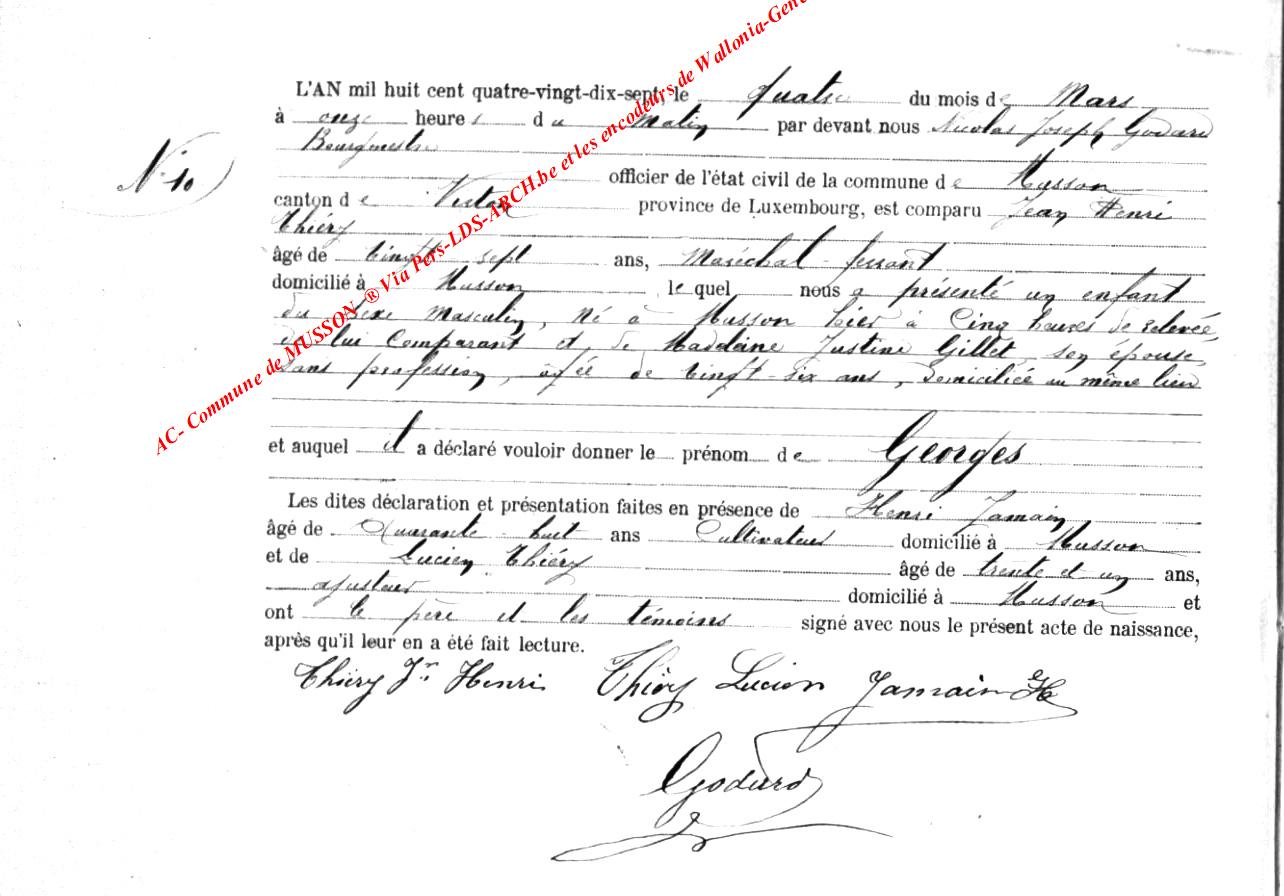 L'AN mil huit cent quatre-vingt-dix-sept, le quatre du mois de Mars
à onze heures du Matin par devant nous Nicolas Joseph Godard
Bourgmestre
N. 10
officier de l'état civil de la commune de Musson
canton de Virton province de Luxembourg, est comparu Jean Henri
Thiéry
âgé de vingt sept ans, Maréchal-ferrant
domicilié à Musson lequel nous a présenté un enfant
du sexe masculin, né à Musson hier à Cinq heures de relevée,
de lui Comparant et de Madeleine Justine Gillet, son épouse,
sans profession, âgée de vingt-six ans, domiciliée au même lieu
et auquel il a déclaré vouloir donner le prénom de Georges
Les dites déclaration et présentation faites en présence de Henri Jamain
âgé de Quarante huit ans Cultivateur domicilié à Musson
et de Lucien Thiéry âgé de trente et un ans,
ajusteur domicilié à Musson et
ont le père et les témoins signé avec nous le présent acte de naissance,
après qu'il leur en a été fait lecture.
Thiéry Jn Henri Thiéry Lucien Jamain H
Godard
AC- Commune de MUSSON ® Via Pers-LDS-ARCH.be et les encodeurs de Wallonia-Gene